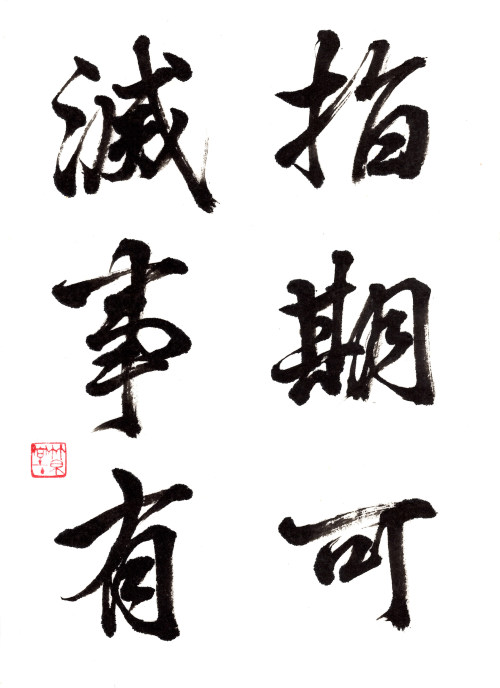 指期可
滅事有